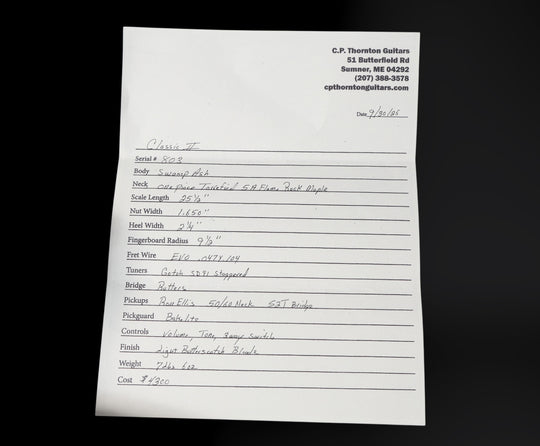 C.P. Thornton Guitars
51 Butterfield Rd
Sumner, ME 04292
(207) 388-3578
cpthorntonguitars.com
Date 9/30/25
Classic II
Serial # 803
Body Swamp Ash
Neck one piece Torrefied 5A Flame Rock Maple
Scale Length 25 1/2"
Nut Width 1.650"
Heel Width 2 1/4"
Fingerboard Radius 9 1/2"
Fret Wire EVO .047x.104
Tuners Gotoh SD91 Staggered
Bridge Rutters
Pickups Ron Ellis 50/60 Neck 52T Bridge
Pickguard Bakelite
Controls Volume, Tone, 3way Switch
Finish Light Butterscotch Blonde
Weight 7lbs 6oz
Cost $4300